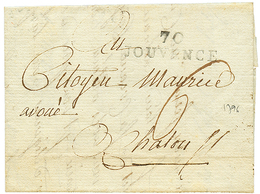 70
JOUVENCE
au
Citoyen Maurice
avoué
Chalon